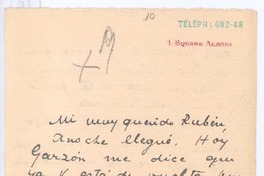 10
TÉLÉPH: 682-48
7. SQUARE ALBONI
Mi muy querido Rubén,
Anoche llegué. Hoy
Garzón me dice que
ya V. está de vuelta